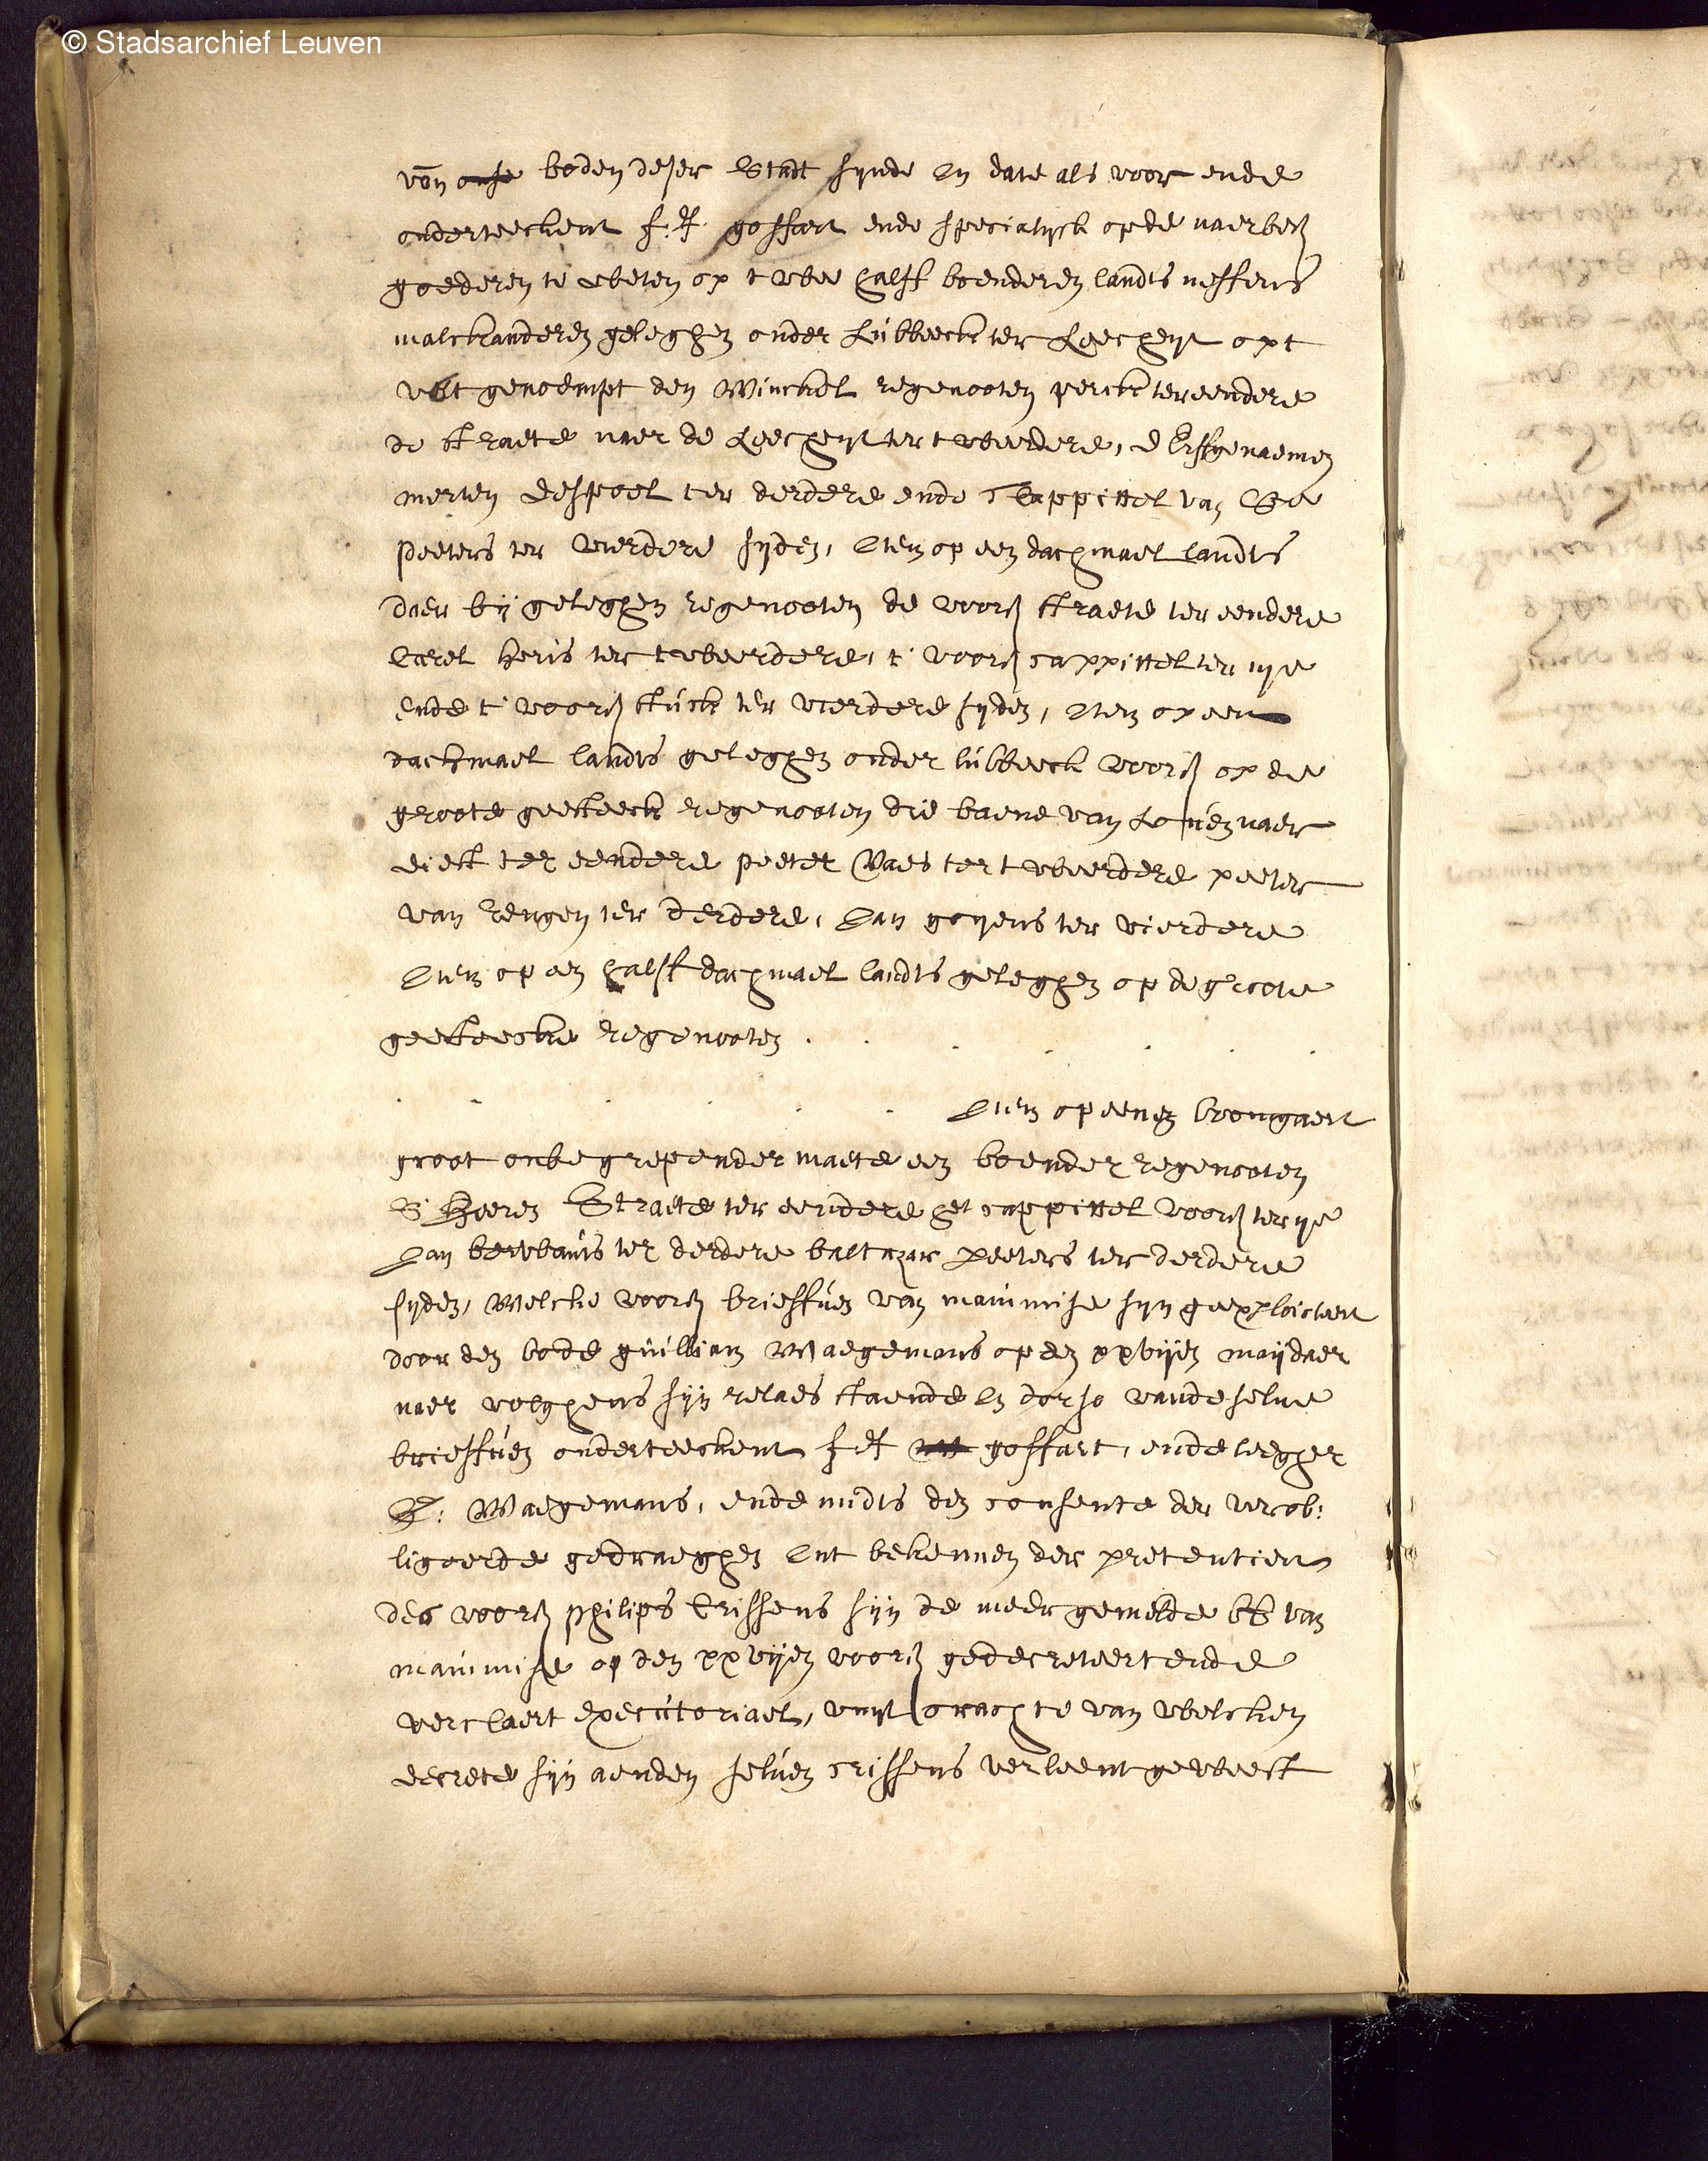 © Stadsarchief Leuven
van onse boden deser Stadt synde In date als voor ende
onderteeckent goffart ende specialyck opde naerbes
goederen te weten op twee halff boenderen landts neffens
malckanderen geleghen onder Lubbeeck ter opt
velt genoempt den Winckel regenooten perck ter eendere
de straete naer de ter tweedere, d Erffgenaemen
merten despoel ter derdere ende T Cappittel van Ste
peeters ter vierdere syden, Item op een dachmael landts
daer bij geleghen regenooten de voors straete ter eendere
Carel heris ter tweerdere, t' voors cappittel ter iije
ende t' voors stuck ter vierdere syden, Item op een
dachmael landts geleghen onder lubbeeck voors op de
groote geesteeck regenooten die baene van Loven naer
diest ter eendere peeter Vaes ter tweerdere peeter
van hengen ter derdere, Jan goyens ter vierdere
Item op een halff dachmael landts geleghen op de groote
geesteecke regenooten . . . . . .
. . . . . . Item op eenen boomgaert
groot onbegrepender maete een boender regenooten
S' Heeren Straete ter eendere het cappittel voors ter ije
Jan ter derdere baltazar peeters ter derdere
syden, Welcke voors brieffven van mainmise syn geexploicteert
door den bode guilliam Waegemans op den xxvijen maij daer
naer volghens sijn relaes staende In dorso vande selve
brieffven onderteeckent goffart, ende leegher
G: Waegemans, ende midts den consente der verob:
ligeerde gedraeghen Int bekennen der pretentien
des voors philips Crissens sijn de meer gemelde bb van
mainmise op den xxvijen voors gedecreteert ende
verclaert executoriael, vuyt crachte van welcken
decrete sijn aenden selven crissens verleent geweest